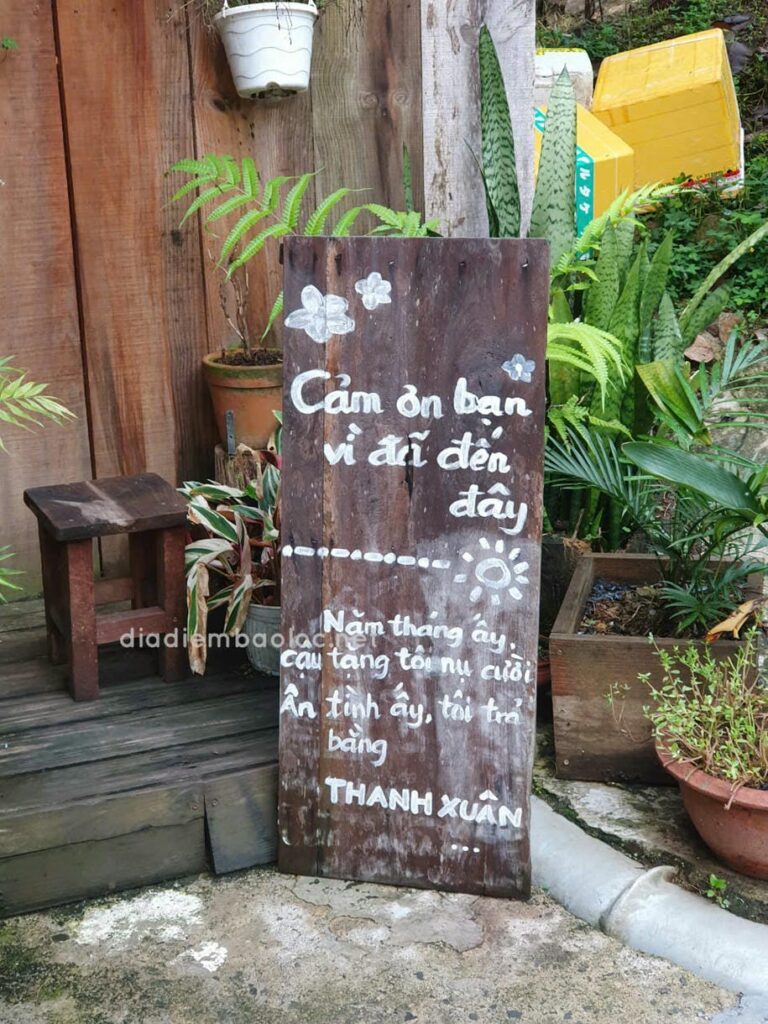 Cảm ơn bạn
vì đã đến
đây
Năm tháng ấy,
cậu tặng tôi nụ cười
Ân tình ấy, tôi trả
bằng
THANH XUÂN
...
diadiembaoloc.net